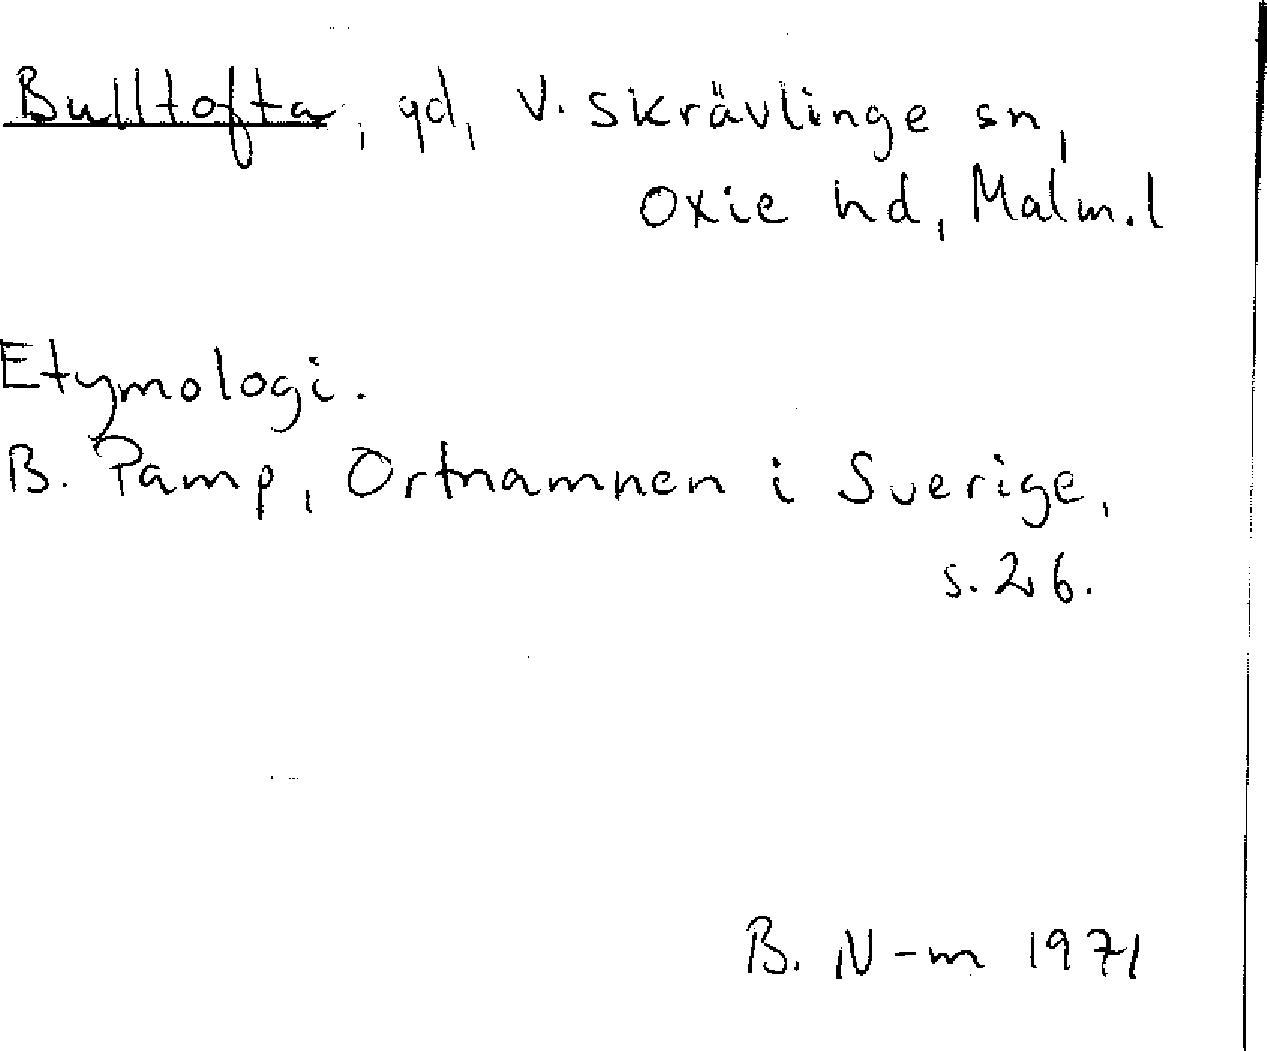 Bulltofta, gd, V. Skrävlinge sn,
Oxie hd, Malm.l
Etymologi.
B. Pamp, Ortnamnen i Sverige,
s. 26.
B. N-m 1971